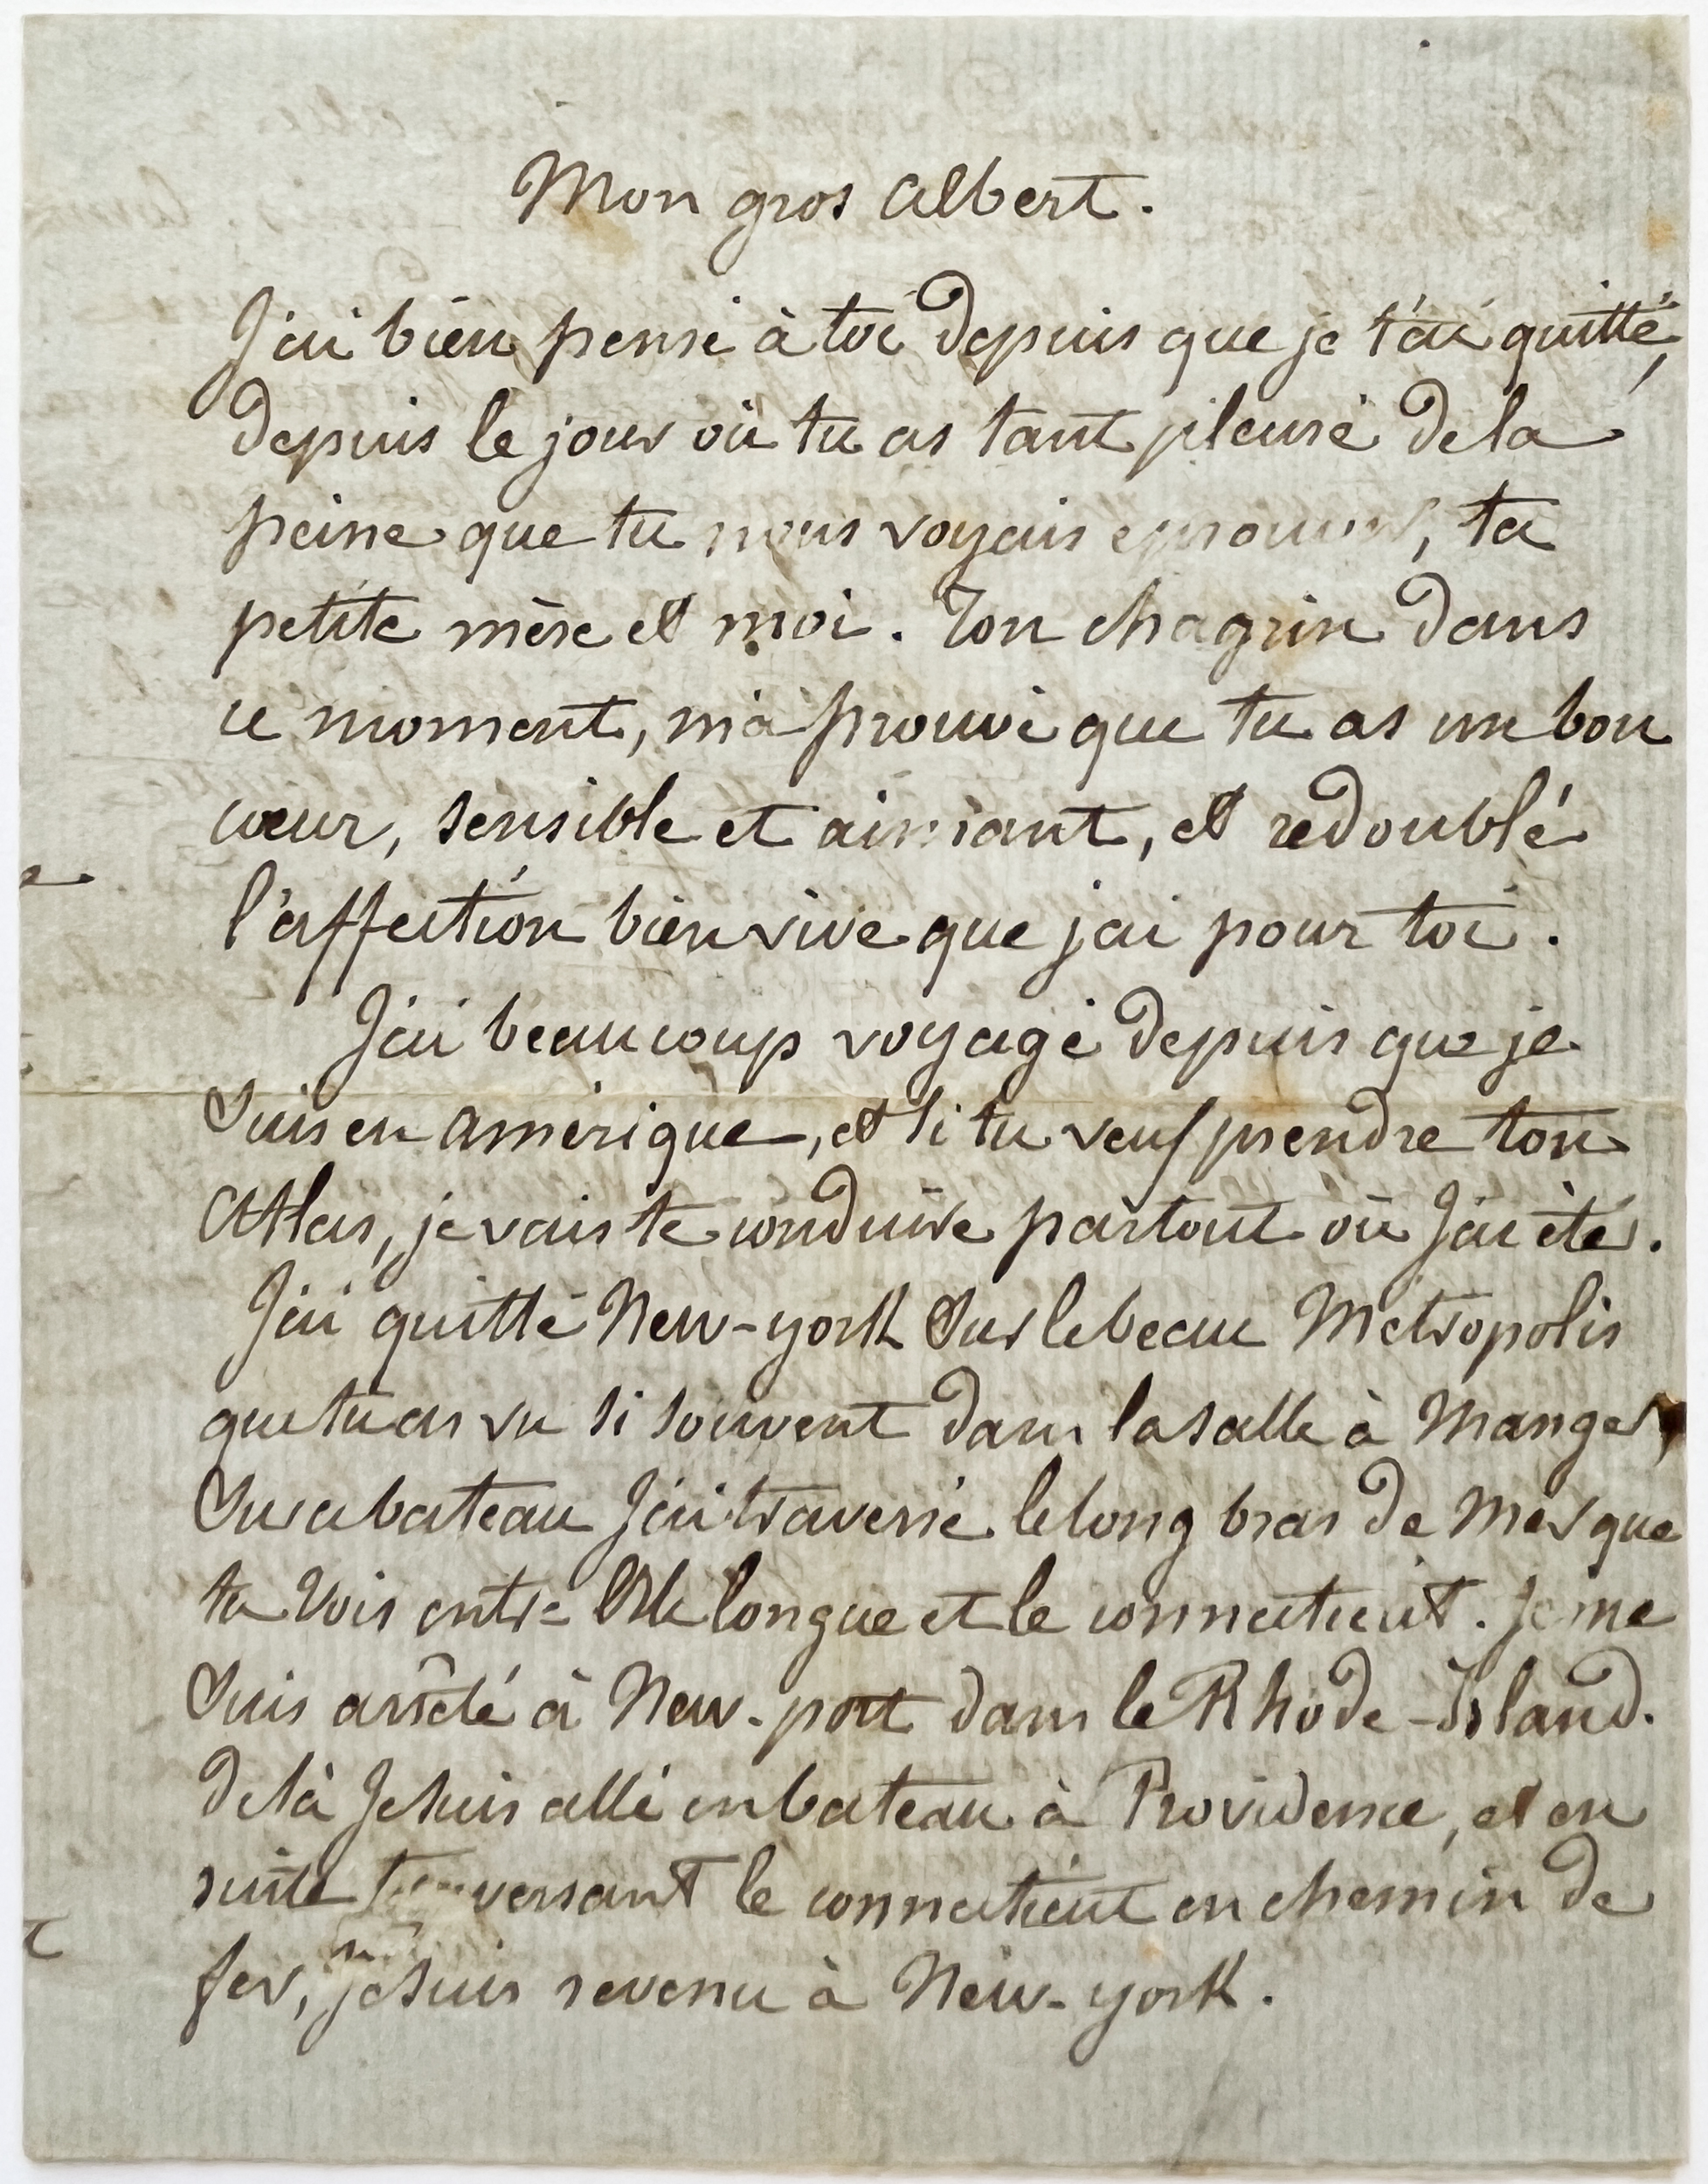 Mon gros Albert.
J'ai bien pensé à toi depuis que je t'ai quitté,
depuis le jour où tu as tant pleuré de la
peine que tu nous voyais eprouver, ta
petite mère et moi. Ton chagrin dans
ce moment, m'a prouvé que tu as un bon
cœur, sensible et aimant, et redoublé
l'affection bien vive que j'ai pour toi.
J'ai beaucoup voyagé depuis que je
suis en amérique, et si tu veux prendre ton
Atlas, je vais te conduire partout où J'ai été.
J'ai quitté New-york sur le beau Metropolis
que tu as vu si souvent dans la salle à manger,
Sur ce bateau J'ai traversé le long bras de mer que
tu vois entre l'Ile longue et le connecticut. Je me
suis arrêté à New-port dans le Rhode-Island.
de là Je suis allé en bateau à Providence, et en
suite traversant le connecticut en chemin de
fer, je suis revenu à New-york.